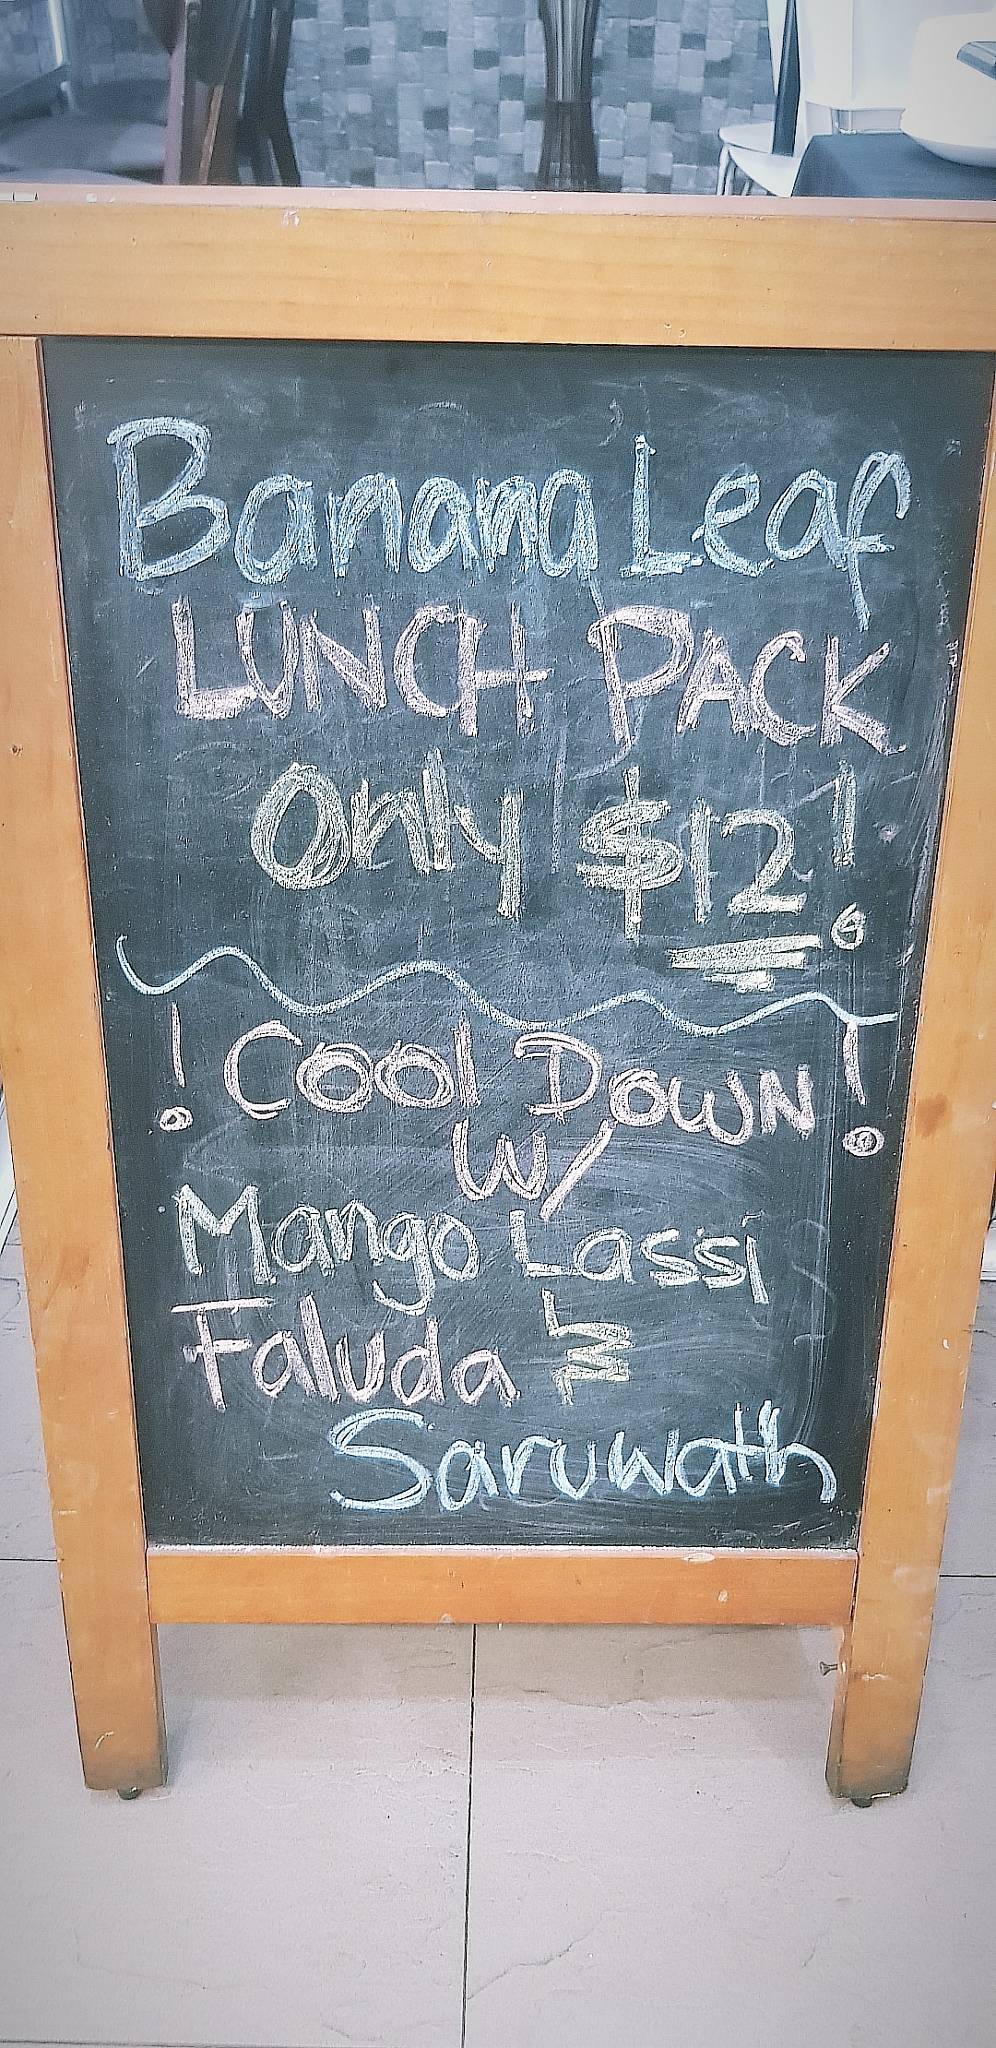 Banana Leaf
LUNCH PACK
Only $12!
! COOL DOWN!
W/
Mango Lassi
Faluda &
Saruwath